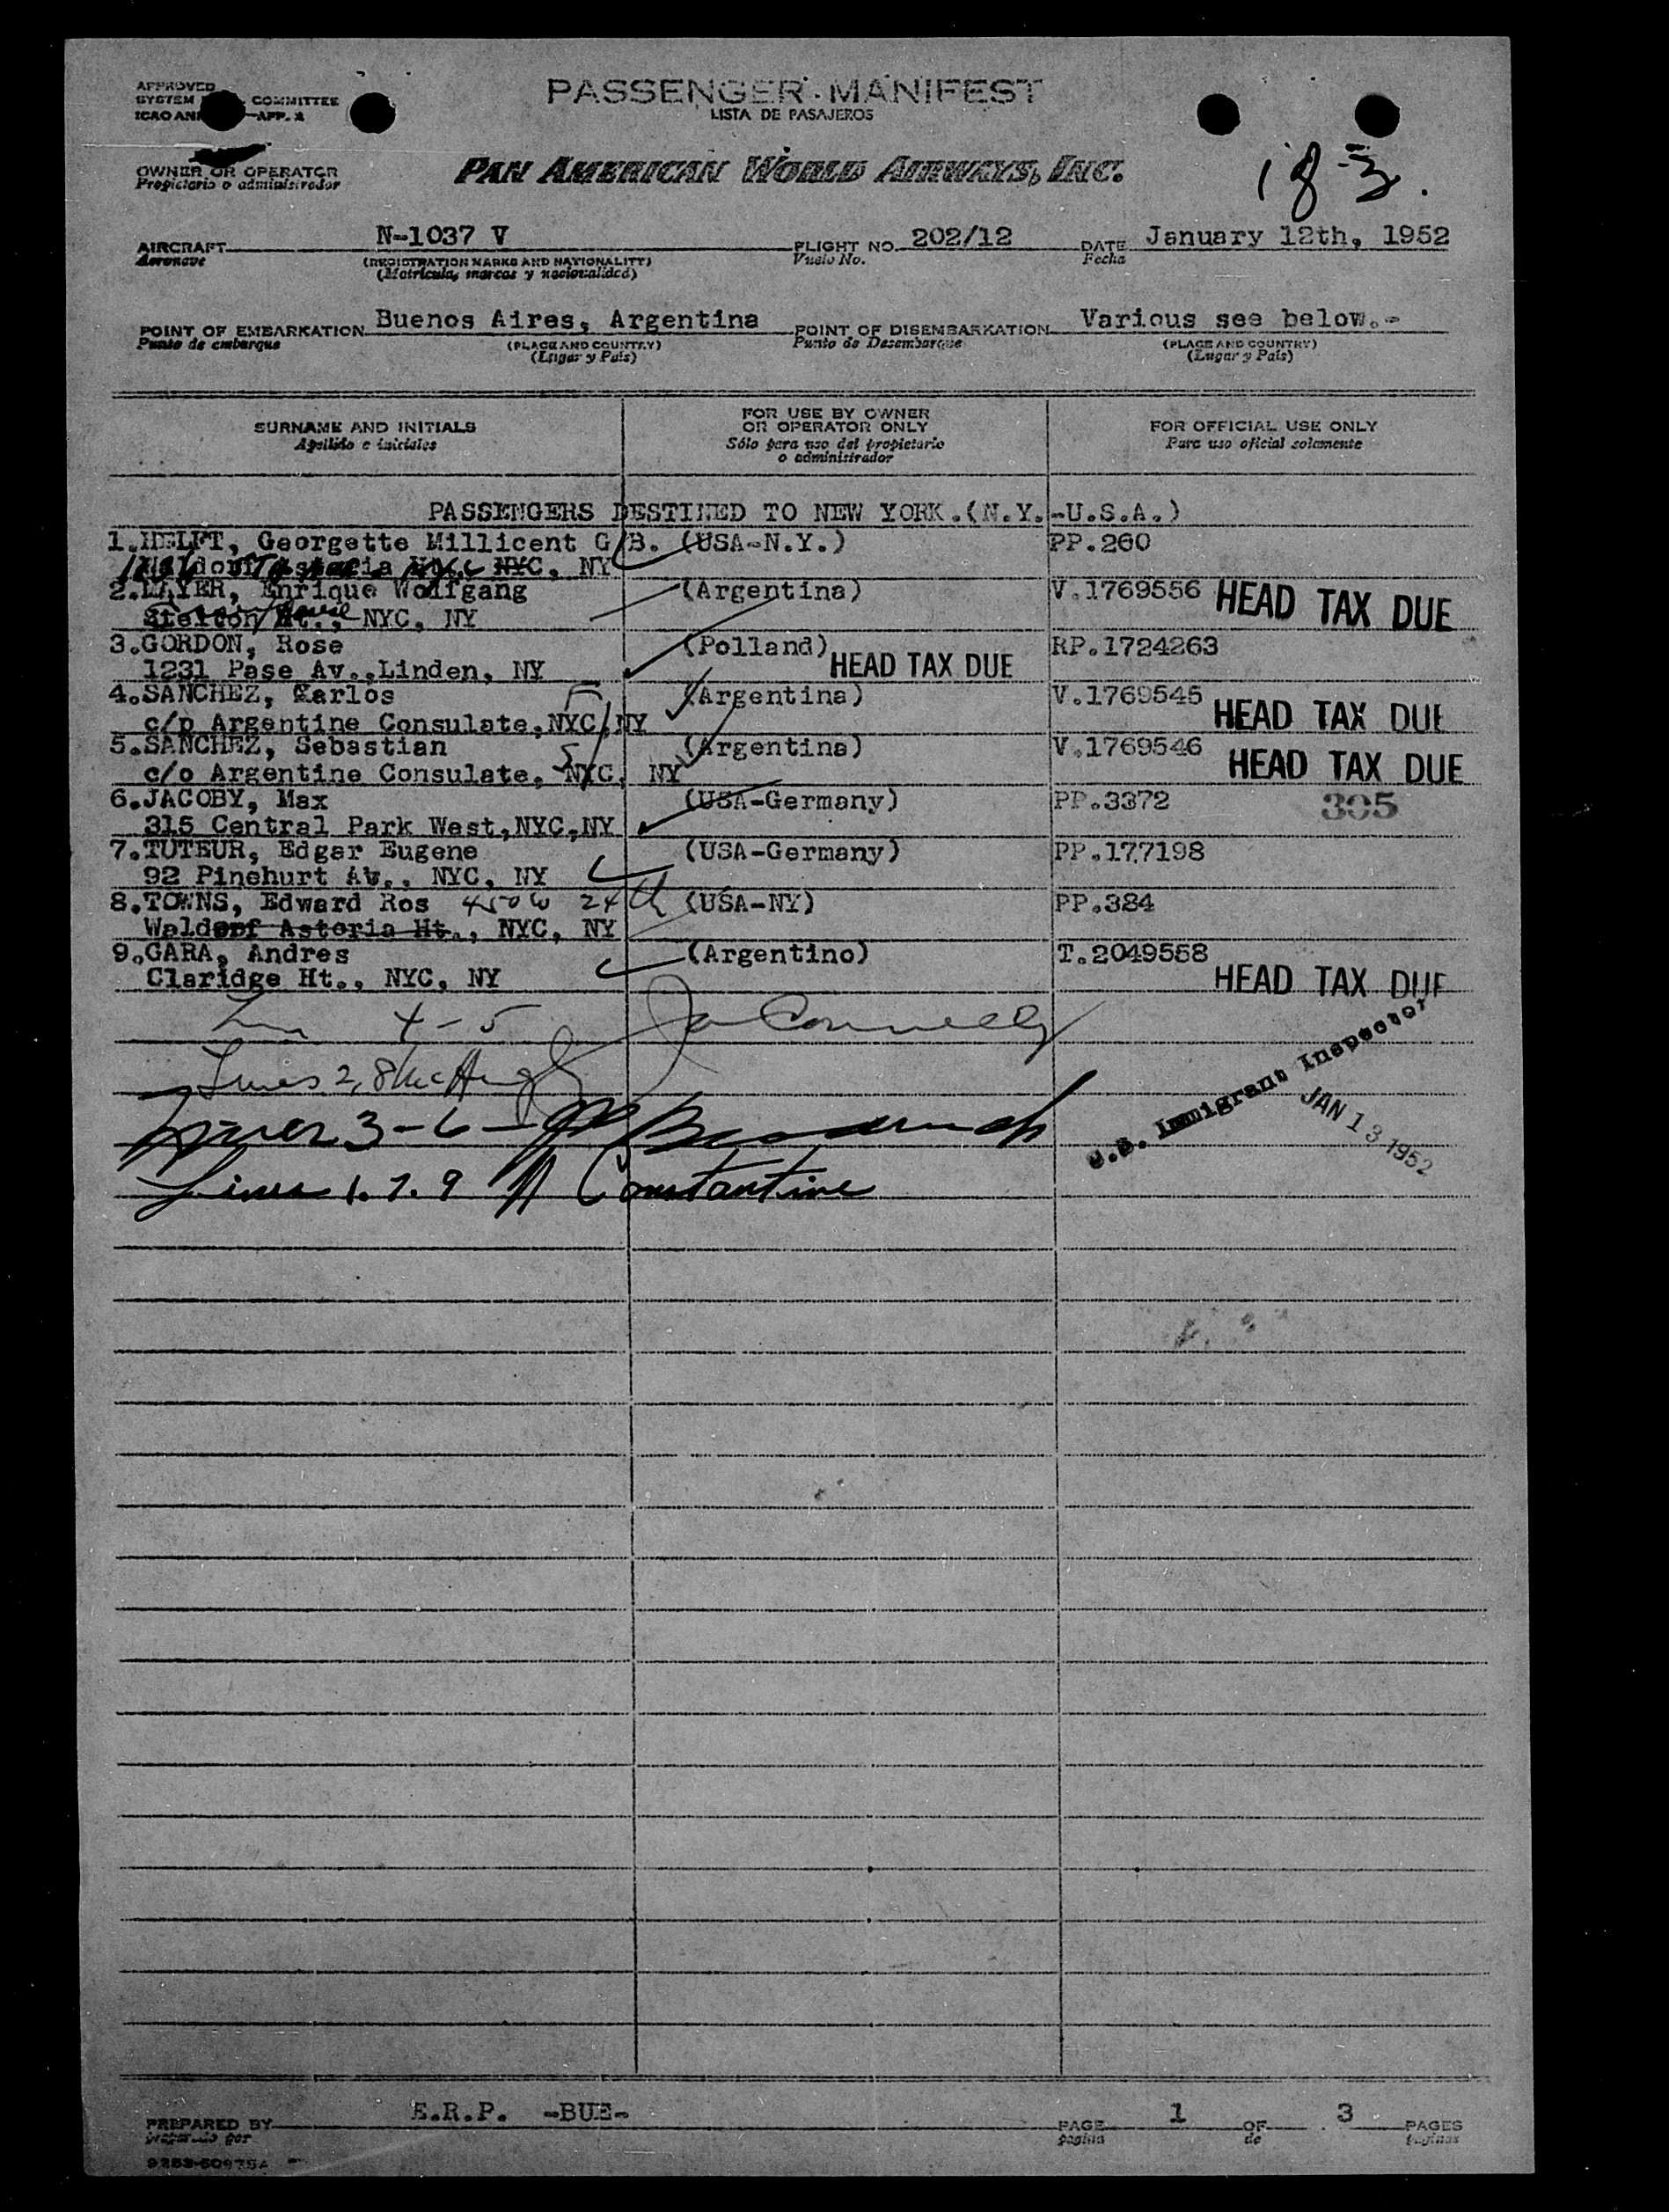 APPROVED
SYSTEM COMMITTEE
ICAO AN APP. 2
PASSENGER MANIFEST
LISTA DE PASAJEROS
OWNER OR OPERATOR
Propietario o administrador
PAN AMERICAN WORLD AIRWAYS, INC.
1 of 3.
AIRCRAFT N-1037 V FLIGHT NO. 202/12 DATE January 12th, 1952
Aeronave (REGISTRATION MARKS AND NATIONALITY) Vuelo No. Fecha
(Matricula, marcas y nacionalidad)
POINT OF EMBARKATION Buenos Aires, Argentina POINT OF DISEMBARKATION Various see below.-
Punto de embarque (PLACE AND COUNTRY) Punto de Desembarque (PLACE AND COUNTRY)
(Lugar y País) (Lugar y País)
SURNAME AND INITIALS FOR USE BY OWNER OR OPERATOR ONLY FOR OFFICIAL USE ONLY
Apellido e iniciales Sólo para uso del propietario o administrador Para uso oficial solamente
PASSENGERS DESTINED TO NEW YORK.(N.Y.-U.S.A.)
1.HELFT, Georgette Millicent G/B. (USA-N.Y.) PP.260
NYC, NY
2.MAYER, Enrique Wolfgang (Argentina) V.1769556 HEAD TAX DUE
NYC, NY
3.GORDON, Rose (Polland) RP.1724263
1231 Pase Av.,Linden, NY HEAD TAX DUE
4.SANCHEZ, Karlos (Argentina) V.1769545
c/p Argentine Consulate,NYC,NY HEAD TAX DUE
5.SANCHEZ, Sebastian (Argentina) V.1769546
c/o Argentine Consulate, NYC, NY HEAD TAX DUE
6.JACOBY, Max (USA-Germany) PP.3372 305
315 Central Park West,NYC,NY
7.TUTEUR, Edgar Eugene (USA-Germany) PP.177198
92 Pinehurt Av., NYC, NY
8.TOWNS, Edward Ros 450 W 24th (USA-NY) PP.384
Waldorf Astoria Ht., NYC, NY
9.GARA, Andres (Argentino) T.2049558
Claridge Ht., NYC, NY HEAD TAX DUE
4-5 Connelly
Lines 2, 8
Lines 3-6-
Lines 1. 7. 9 Constantine
U.S. Immigrant Inspector
JAN 13 1952
PREPARED BY E.R.P. -BUE- PAGE 1 OF 3 PAGES
preparado por pagina de paginas